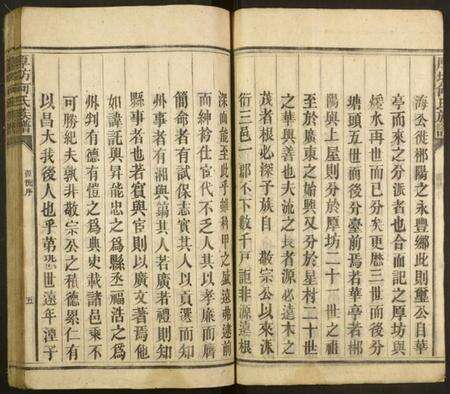 海公徙郴陽之永豐鄉此則璽公自華
亭而來之分派者也合面記之厚坊與
綏水再西而已分矣更曆三世而後分
塘頭五世而後分臺前焉若華亭者郴
陽與上屋則分於厚坊二十一世之祖
至於廣東之始興又分於星村二十世
之華與善也夫流之長者源必遠木之
茂者根必探子族自敬宗公以來派
衍三邑一郡不下數千戶詎非源遠根
深而能至此乎雖科甲之風遠弗逮前
而紳衿仕宦代不乏人其以孝廉而膺
簡命者有試保志實其人以貢選而知
州事者有湘與 其人若廣者禮則知
縣事者也若實與宦則以廣文著焉他
如諱託與昇能忠之爲縣丞福浩之爲
州判有德有愷之爲典史載諸邑乘不
可勝紀夫孰非敬宗公之積德累仁有
以昌大我後人也乎第恐世遠年湮子
厚坊何氏族譜
舊後序
五